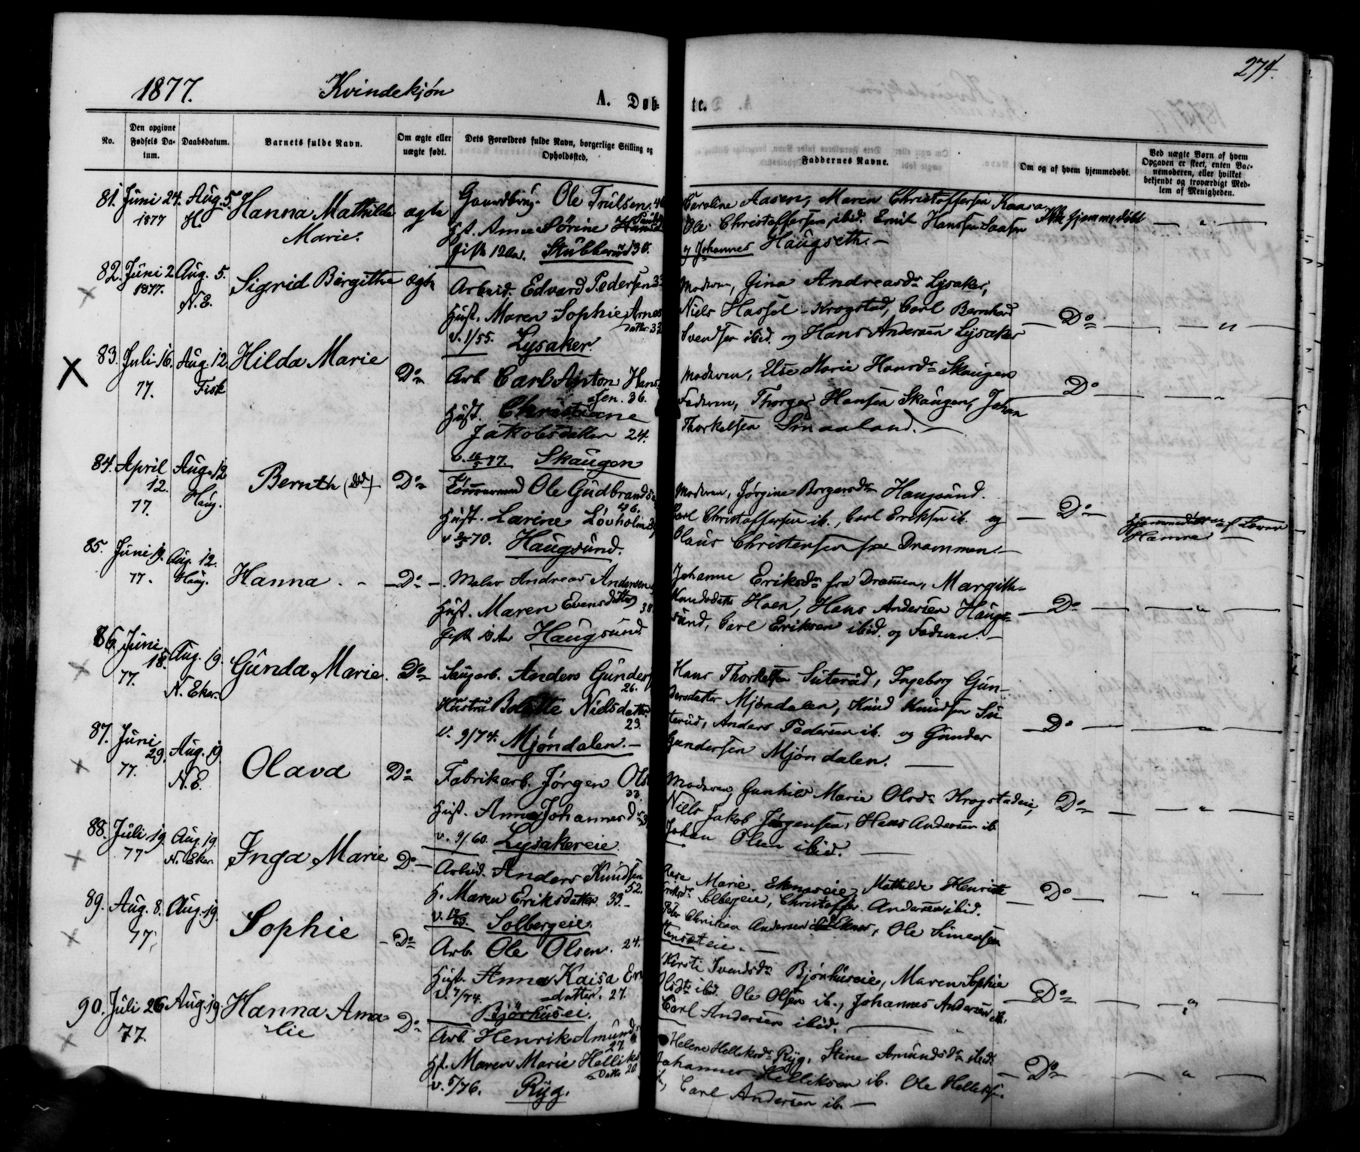 1877.
Kvindekjøn
A. Døb-
te.
274.
No.
Den opgivne Fødsels Datum.
Daabsdatum.
Barnets fulde Navn.
Om ægte eller uægte født.
Dets Forældres fulde Navn, borgerlige Stilling og Opholdssted.
Faddernes Navne.
Om og af hvem hjemmedøbt.
Ved uægte Børn af hvem Opgaven er skeet, enten Barnemoderen, eller hvilket bekjendt og troværdigt Medlem af Menigheden.
81. Juni 24. Aug. 5.
1877 H.
Hanna Mathilde
Marie.
ægte
Gaardbrug. Ole Trulsen 46
Hst. Anne Sørine
Gift 12 Aar. Stubberud 30.
Caroline Aasen, Maren Christoffersen Kaasa
Ole Christoffersen, ibid. Emil Hansen Aasen
og Johannes Haugseth. —
Ikke hjemmedøbt
82. Juni 2. Aug. 5.
1877. N.E.
Sigrid Birgithe
ægte
Arbeid. Edvard Pedersen 33
Hust. Maren Sophie Arnes
datter 33
v. 1/55. Lysaker.
Moderen, Gina Andreasdr Lysaker,
Niels Hassel-Krogstad, Carl Bernhard
Svendsen ibid og Hans Andersen Lysaker
— Do —
83. Juli 16. Aug. 12
77. Fisk
Hilda Marie
Do
Arb. Carl Anton Hans
sen. 36.
Hust. Christiane
Jakobsdatter 24.
77. Skaugen
Moderen, Else Marie Hansdr Skaugen
Faderen, Thorger Hansen Skaugen, Johan
Thorkelsen Smaaland. —
Do
84. April Aug. 12
12. Haug.
77.
Bernth
Do
Ole Gudbrands
46.
Hust. Larine Løvholm
70. Haugsund.
Moderen, Jørgine Borgersdr Haugsund.
Carl Christoffersen ib., Carl Eriksen ib. og
Olaus Christensen fra Drammen. —
— Do —
Hjemmedøbt af
Hamre —
85. Juni Aug. 12.
77. Haug.
Hanna
— Do —
Maler Andreas Andersen
Hust. Maren Evensdatter 38
Gift Aar Haugsund
Johanne Eriksdr fra Dramen, Margith
Knudsdatter Hoen, Hans Andersen Haug-
sund, Carl Eriksen ibid. og Faderen. —
— Do —
86. Juni Aug. 19.
18. N. Eker.
77.
Gunda Marie.
Do
Saugarb. Anders Gunders
26.
Hustru Bolette Nielsdatter
23.
v. 9/74. Mjøndalen. —
Hans Thorkelsen Suterud, Ingeborg Gun-
dersdatter Mjøndalen, Knud Knudsen Su
terud, Anders Pedersen ib. og Gunder
Gundersen Mjøndalen. —
— Do —
87. Juni Aug. 19
29. N.E.
77.
Olava
Do
Fabrikarb. Jørgen Ols
33.
Hust. Anne Johannesd
v. 9/60. Lysakereie
Moderen Gunhild Marie Olsdr Krogstadeie,
Niels Jakob Jørgensen, Hans Andersen ib.
Johan Olsen ibid. —
Do —
88. Juli 19 Aug. 19
77 N. Eker.
Inga Marie
Do —
Arbeid. Anders Knudsen
52.
H. Maren Eriksdatter 33. —
Solbergeie
Marie Ekerneie, Mathilde Henriette
Solbergeie, Christoffer Andersen ibid.
Peder Christian Andersen Eknes, Ole Simensen
— Do —
89. Aug. 8. Aug. 19
77.
Sophie
— Do
Arb. Ole Olsen. 24.
Hust. Anna Kaisa Er
datter. 27.
v. 7/74. Bjørhusei.
Kirsti Svendsdr Bjørhuseie, Maren Sophie
Olsdr ibid. Ole Olsen ib., Johannes Andersen ib.
Carl Andersen ibid. —
— Do —
90. Juli 26 Aug. 19
77.
Hanna Ama
lie
Do
Arb Henrik Amunds
27.
H. Maren Marie Helliks
datter 20
v. 5/76. Ryg.
Helene Helliksdr Ryg, Stine Amundsdr ibid
Johannes Helliksen ib. Ole Helliksen
Carl Andersen ib. —
— Do —